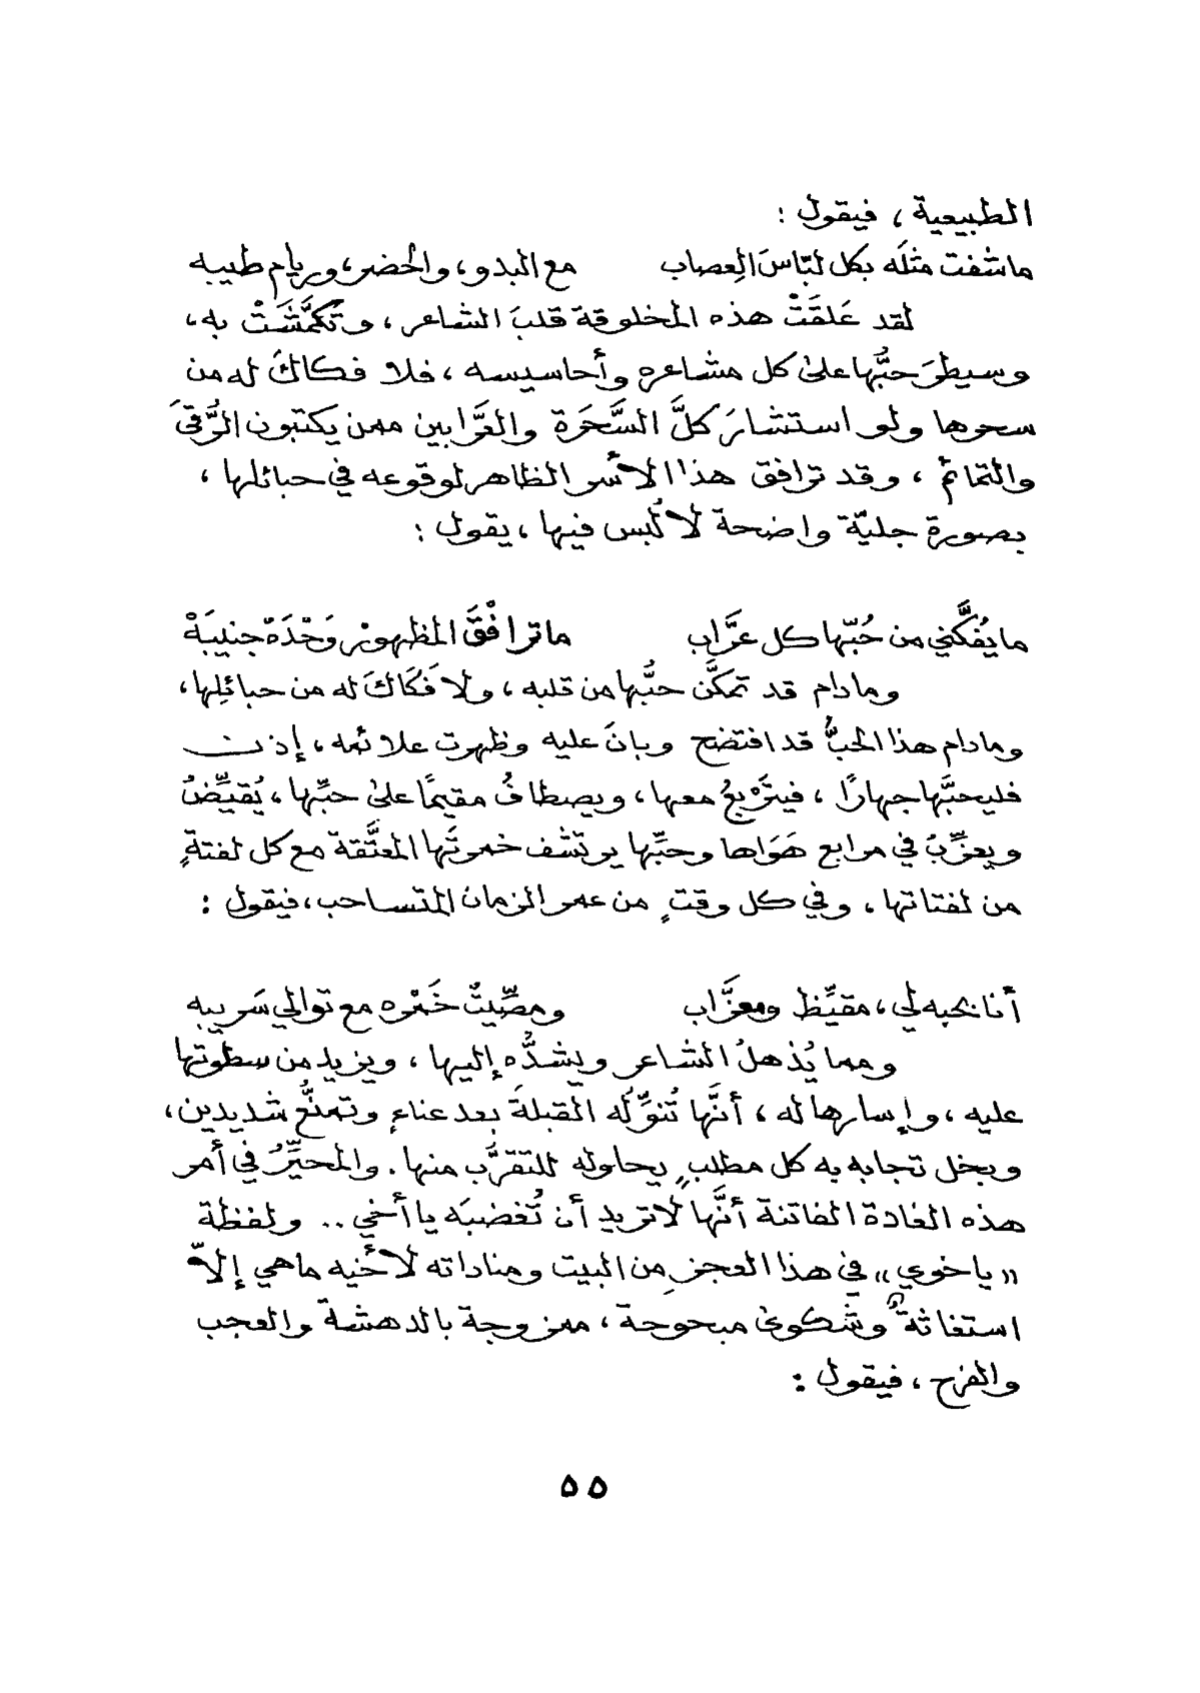 الطبيعية ، فيقول :
ماشفت مثلَه بكل لبّاسَ الِعصاب مع البدو، والحضر، وريام طيبه
لقد عَلقَتْ هذه المخلوقة قلبَ الشاعر ، وتَكَمَّشَتْ به ،
وسيطرَ حبُّها على كل مشاعره وأحاسيسه ، فلا فكاكَ له من
سحرها ولو استشارَ كلَّ السَّحَرَة والعَرَّابين ممن يكتبون الرُّقىَ
والتمائم ، وقد ترافق هذا الأسر الظاهر لوقوعه في حبائلها ،
بصورة جليّة واضحة لا لُبس فيها ، يقول :
ما يْفُكَّني من حُبّها كل عرَّاب ما ترافْقَ المظهورْ وَحْدَهْ جنيبَهْ
ومادام قد تمكَّن حبُّها من قلبه ، ولا فَكَاكَ له من حبائلِها ،
ومادام هذا الحبُّ قد افتضح وبانَ عليه وظهرت علائمه ، إذن
فليحبَّها جهارًا ، فيتَرْبعُ معها ، ويصطافُ مقيمًا على حبِّها ، يُقيِّضُ
ويعزِّبُ في مرابع هَوَاها وحبِّها يرتشف خمرتَها المعتَّقة مع كل لفتةٍ
من لفتاتها ، وفي كل وقتٍ من عمر الزمان المتساحب ، فيقول :
أنا بحبه لي ، مقيِّظ ومعزَّاب ومصِّيتٌ خَمْره مع توالي سَريبه
ومما يُذهلُ الشاعر ويشدُّه إليها ، ويزيد من سطوتها
عليه ، وإسارها له ، أنَّها تُنوِّلُه القبلةَ بعد عناءٍ وتمنُّع شديدين ،
وبخل تجابه به كل مطلبٍ يحاوله للتقرُّب منها . والمحيِّرُ في أمر
هذه الغادة الفاتنة أنَّها لا تريد أن تُغضبَه يا أخي .. ولفظة
«ياخوي» في هذا العجزِ من البيت ومناداته لأخيه ماهي إلاّ
استغاثةٌ وشكوى مبحوحة ، ممزوجة بالدهشة والعجب
والفرح ، فيقول :
٥٥